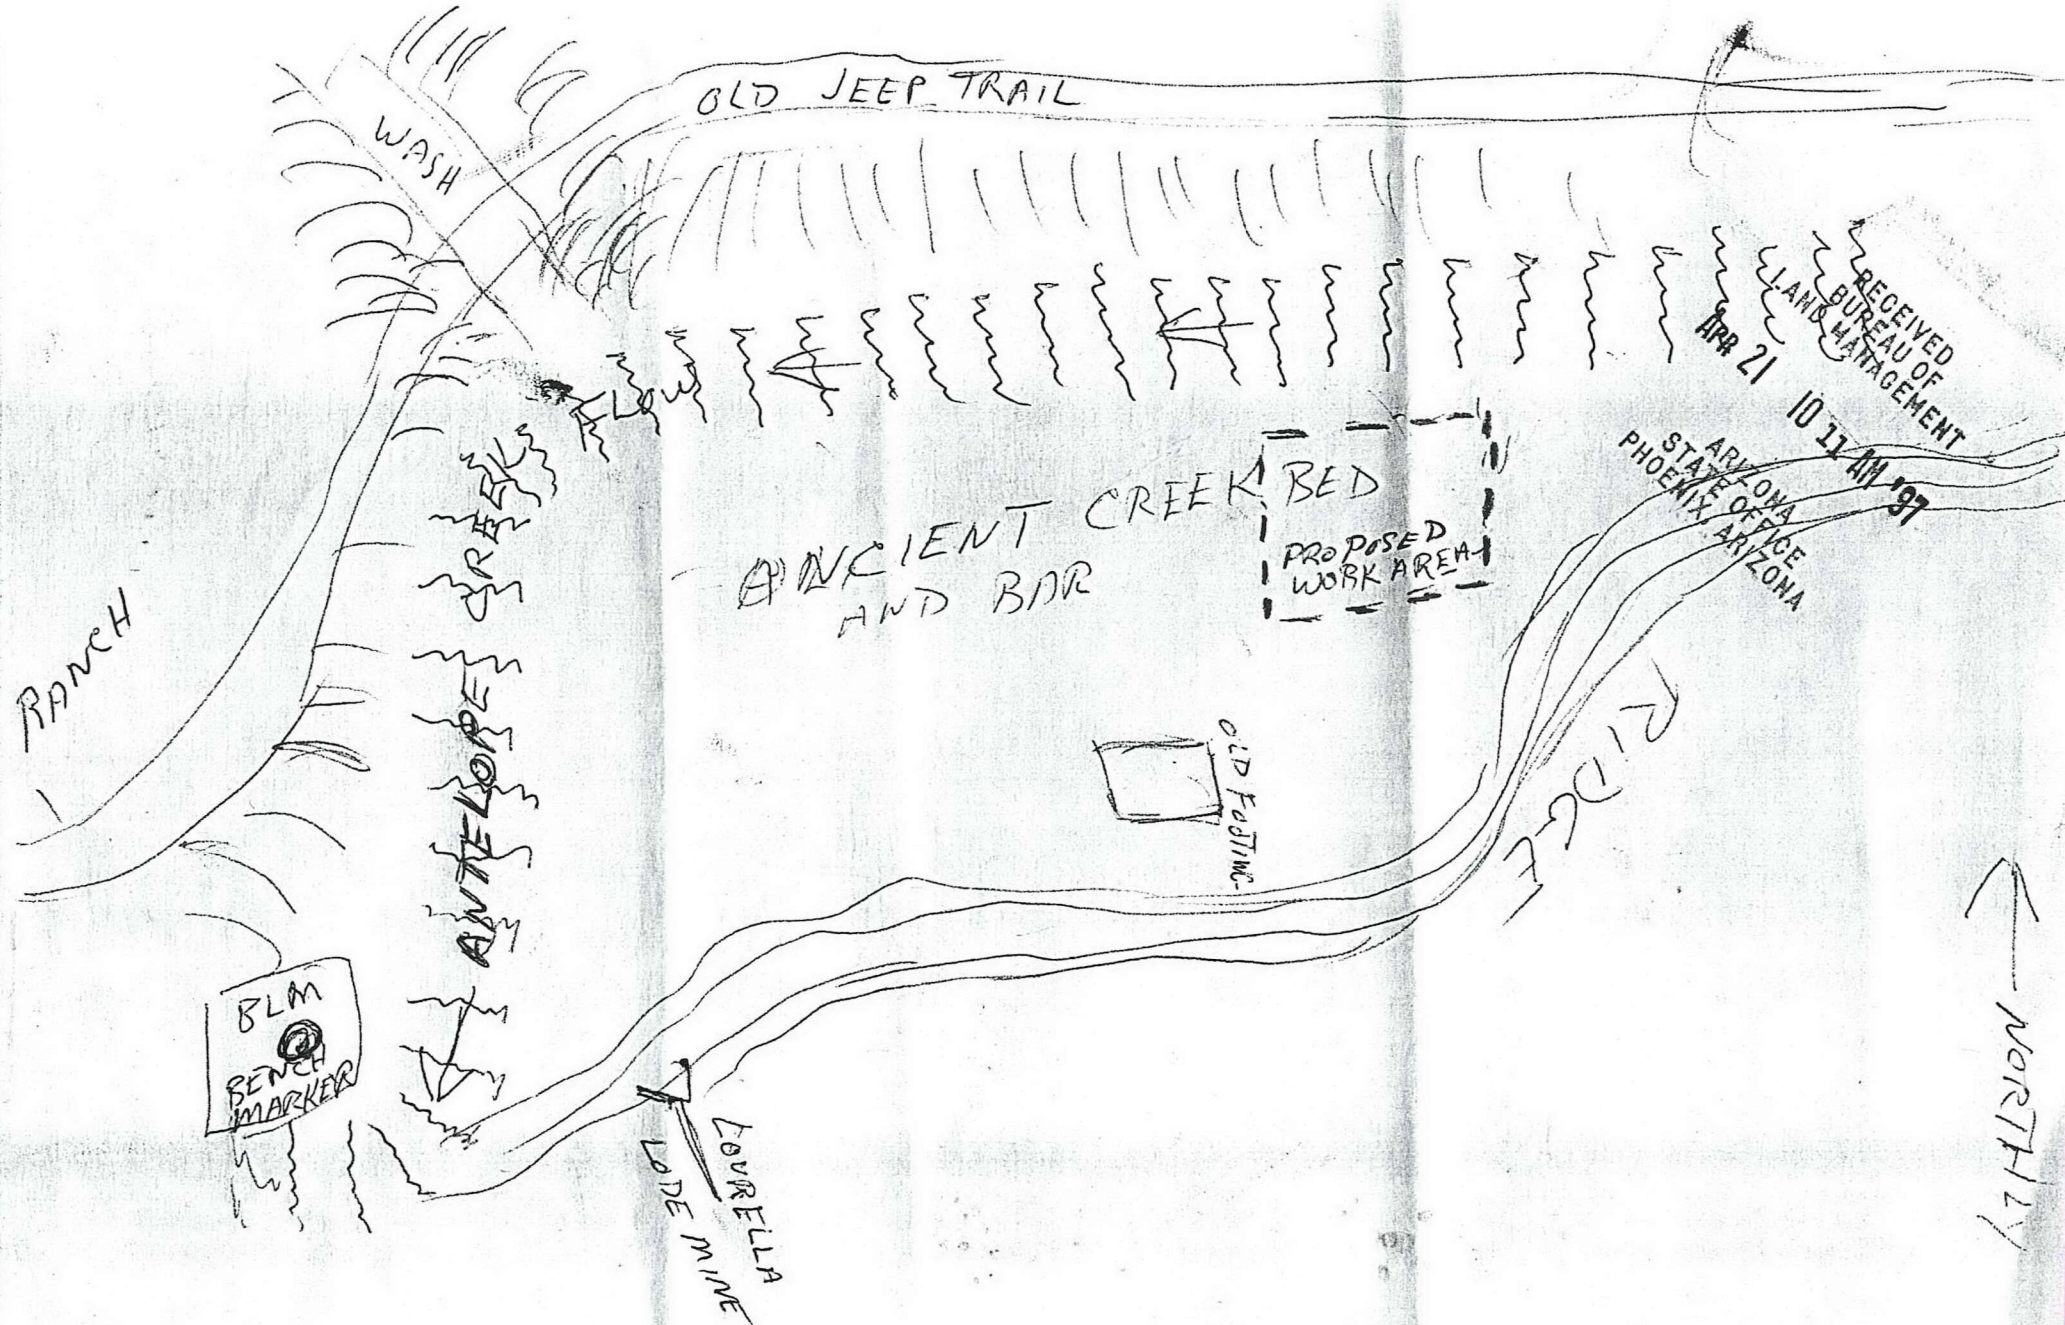 OLD JEEP TRAIL
WASH
RECEIVED
BUREAU OF
LAND MANAGEMENT
APR 21 10 11 AM '97
ARIZONA
STATE OFFICE
PHOENIX, ARIZONA
FLOW
ANCIENT CREEK BED
AND BAR
PROPOSED
WORK AREA
RANCH
ANTELOPE CREEK
OLD FOOTING
RIDGE
BLM
BENCH
MARKER
LOURELLA
LODE MINE
NORTHLY